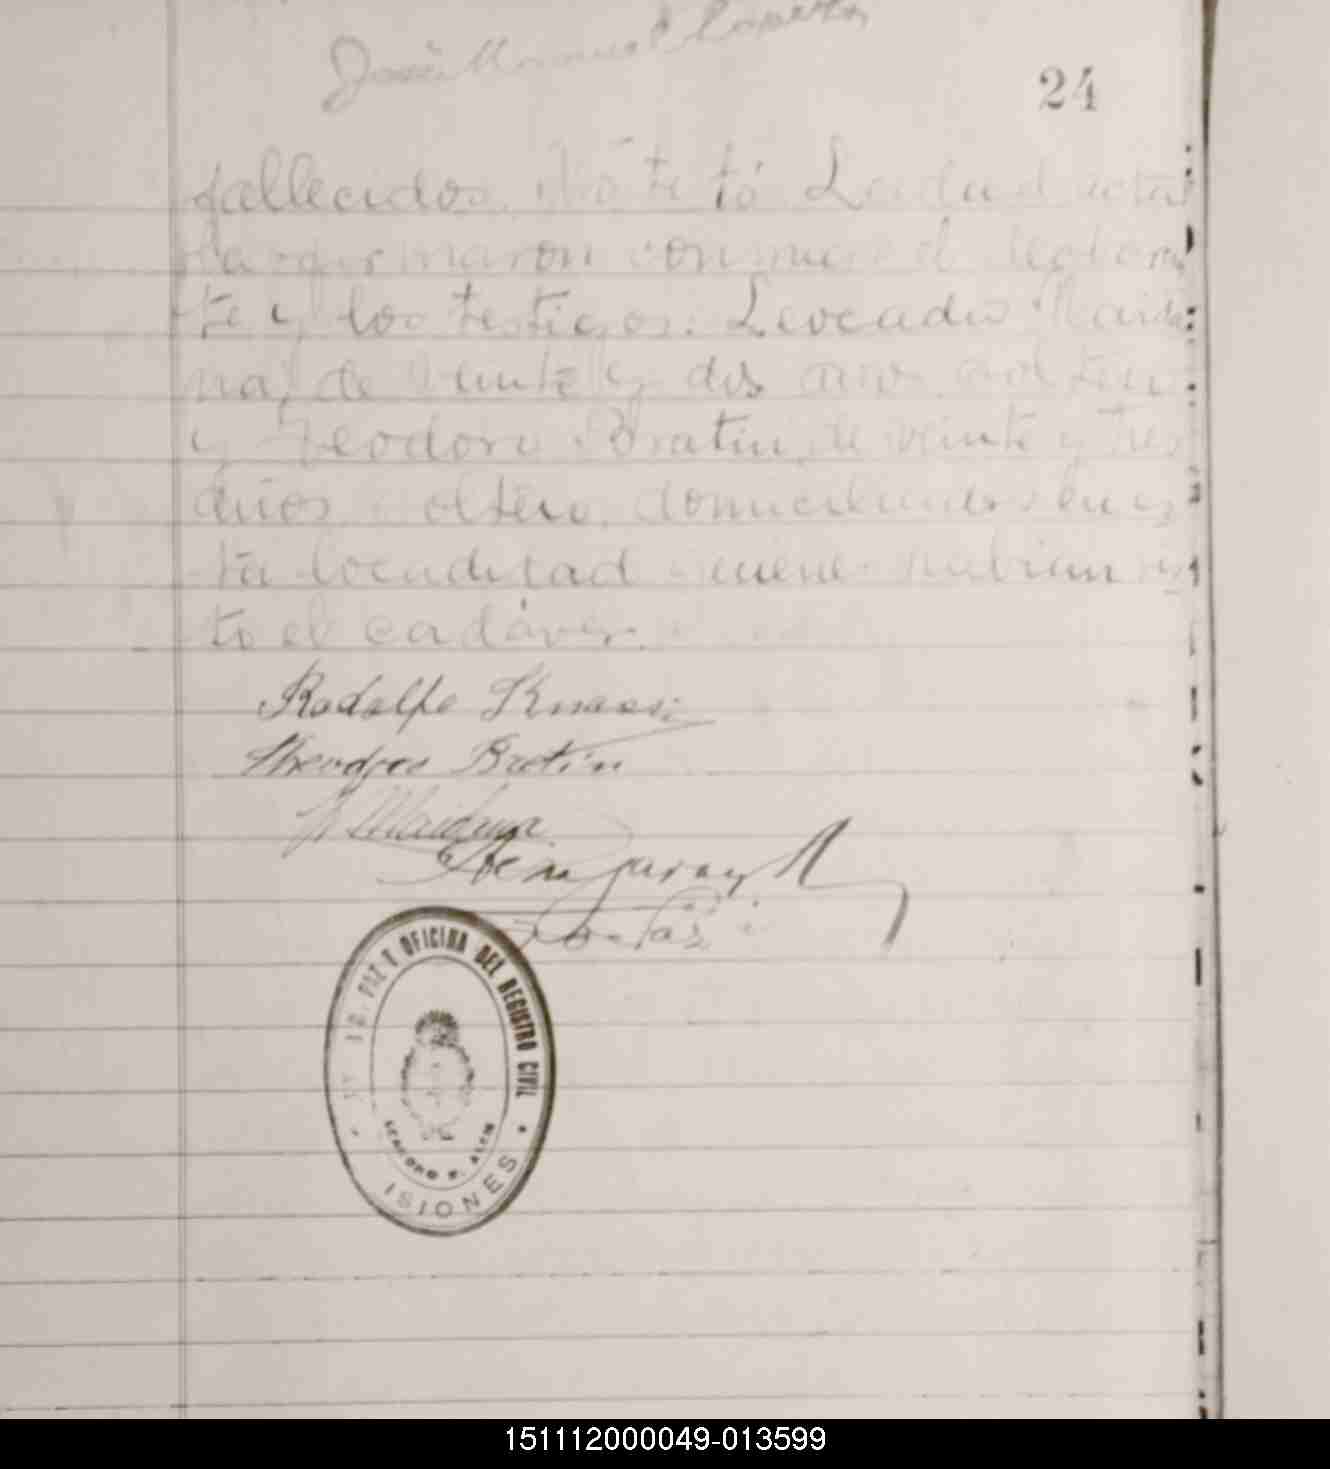 José Manuel
24
fallecidos. No testó. Leida el acta
la firmaron conmigo el declaran
te y los testigos: Leocadio Maida
na, de veinte y dos años soltero
y Teodoro Bratin, de veinte y tres
años soltero, domiciliados en es
ta localidad quienes habian vis
to el cadáver.
Rodolfo
Theodoro Bretin
L Maidana
Garay
JUZ. DE PAZ Y OFICINA DEL REGISTRO CIVIL
LEANDRO N. ALEM
MISIONES
151112000049-013599